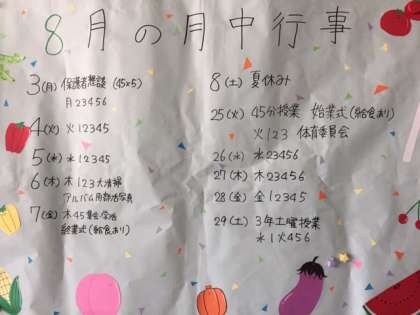 8月の月中行事
3(月) 保護者懇談 (45×5)
月23456
4(火) 火12345
5(水) 水12345
6(木) 木123大掃除
アルバム用部活写真
7(金) 木45集会・学活
終業式(給食あり)
8(土) 夏休み
25(火) 45分授業 始業式(給食あり)
火123 体育委員会
26(水) 水23456
27(木) 木23456
28(金) 金12345
29(土) 3年土曜授業
水1火456